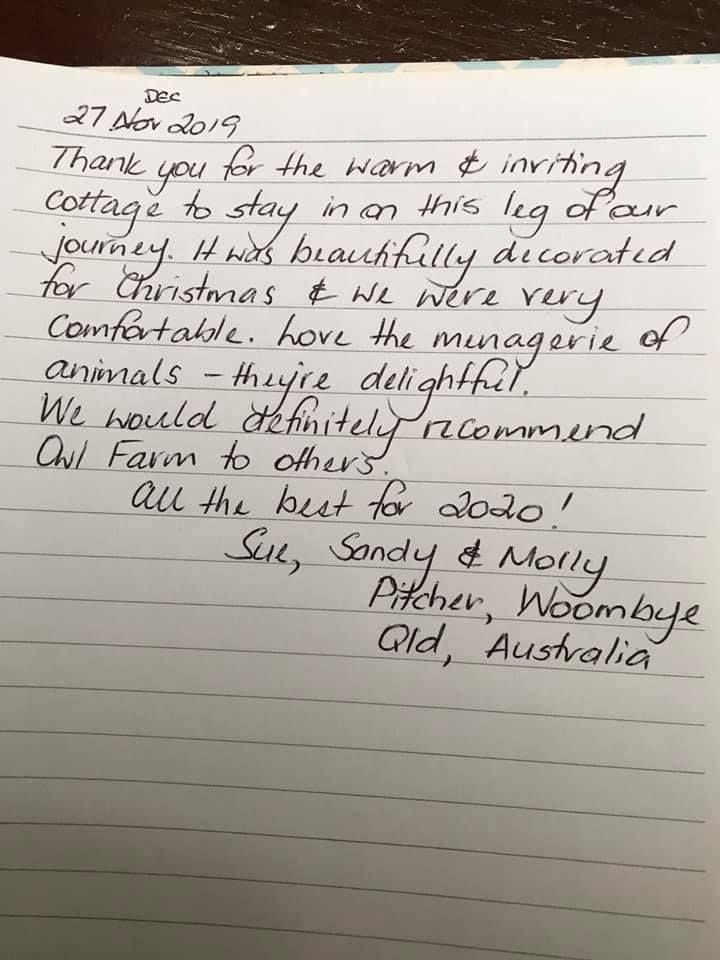 DEC
27 Nov 2019
Thank you for the warm & inviting
cottage to stay in on this leg of our
journey. It was beautifully decorated
for Christmas & we were very
comfortable. Love the menagerie of
animals - they're delightful.
We would definitely recommend
Owl Farm to others.
All the best for 2020!
Sue, Sandy & Molly
Pitcher, Woombye
Qld, Australia